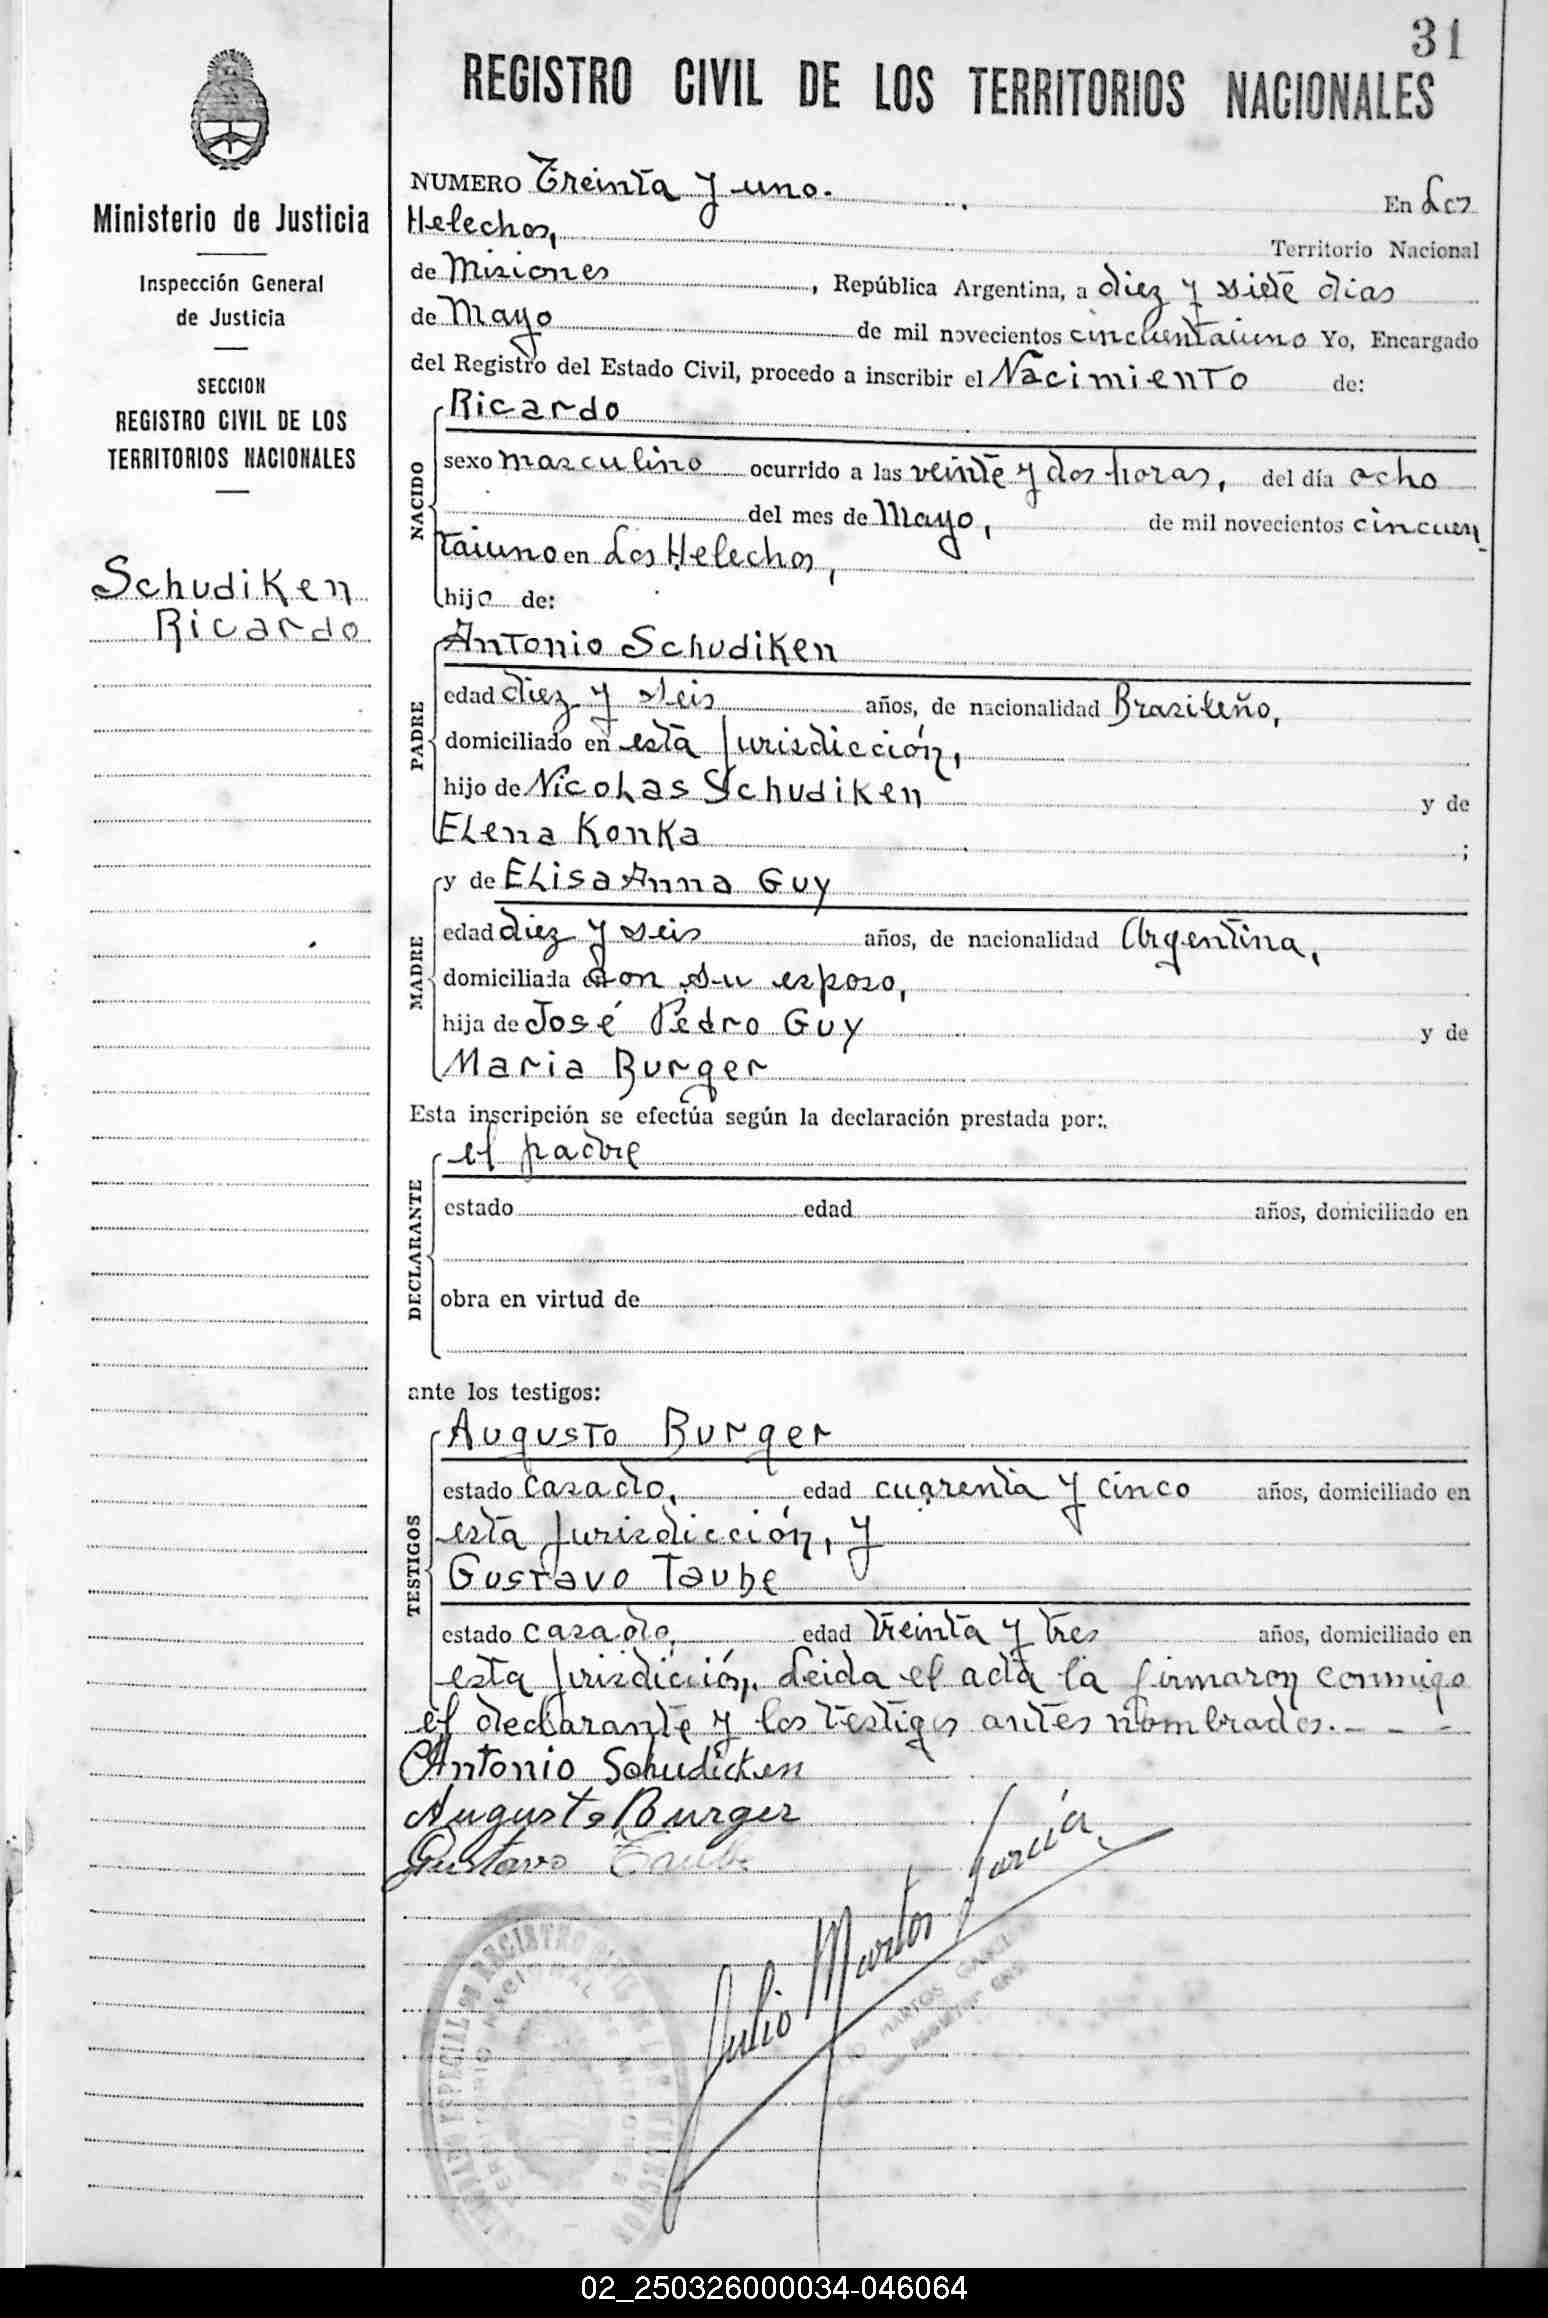 31
REGISTRO CIVIL DE LOS TERRITORIOS NACIONALES
Ministerio de Justicia
Inspección General
de Justicia
SECCION
REGISTRO CIVIL DE LOS
TERRITORIOS NACIONALES
Schudiken
Ricardo
NUMERO Treinta y uno. En Los
Helechos, Territorio Nacional
de Misiones, República Argentina, a diez y siete dias
de Mayo de mil novecientos cincuentaiuno Yo, Encargado
del Registro del Estado Civil, procedo a inscribir el Nacimiento de:
NACIDO
Ricardo
sexo masculino ocurrido a las veinte y dos horas, del día ocho
del mes de Mayo, de mil novecientos cincuen
taiuno en Los Helechos,
hijo de:
PADRE
Antonio Schudiken
edad diez y seis años, de nacionalidad Brasileño,
domiciliado en esta Jurisdicción,
hijo de Nicolas Schudiken y de
Elena Konka ;
MADRE
y de Elisa Anna Guy
edad diez y seis años, de nacionalidad Argentina,
domiciliada con su esposo,
hija de José Pedro Guy y de
Maria Burger
Esta inscripción se efectúa según la declaración prestada por:
DECLARANTE
el padre
estado edad años, domiciliado en
obra en virtud de
ante los testigos:
TESTIGOS
Augusto Burger
estado casado, edad cuarenta y cinco años, domiciliado en
esta Jurisdicción, y
Gustavo Taube
estado casado, edad treinta y tres años, domiciliado en
esta Jurisdicción. Leida el acta la firmaron conmigo
el declarante y los testigos antes nombrados. - - -
Antonio Schudicken
Augusto Burger
Gustavo Taube
Julio Martos Garcia
MARTOS
02_250326000034-046064